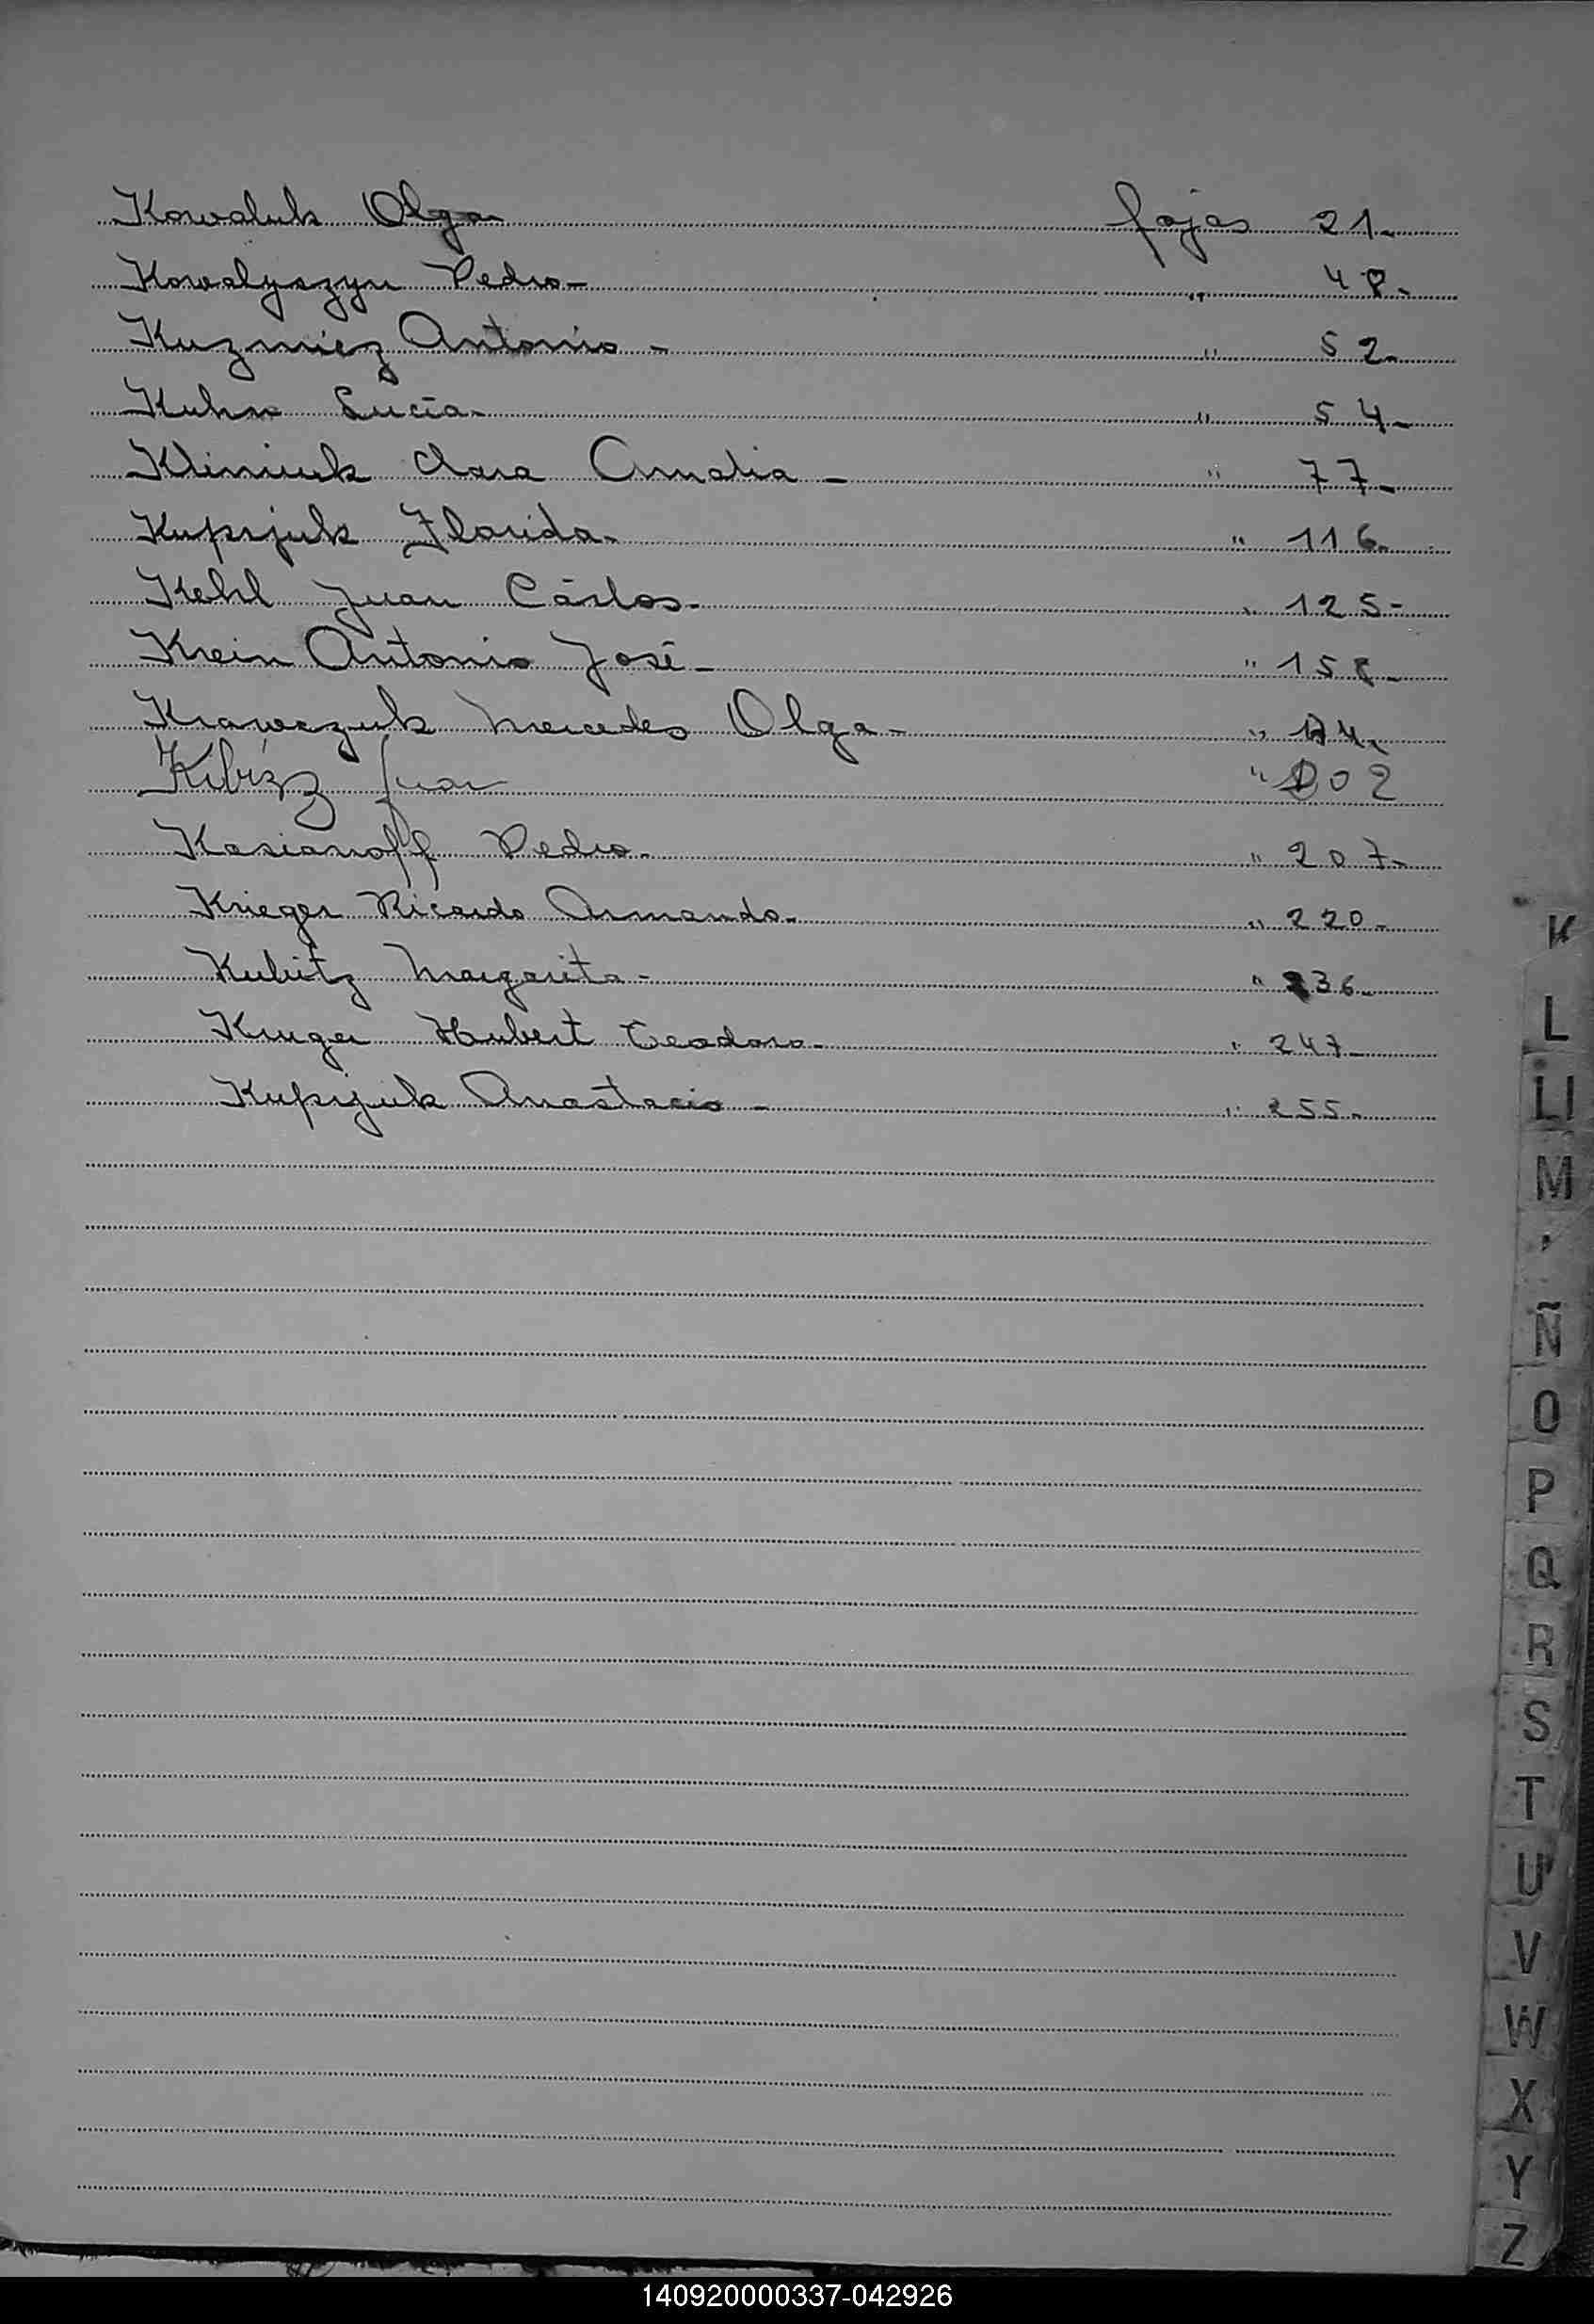 Kowaluk Olga fojas 21-
Kowalyszyn Pedro- " 48-
Kuzmiez Antonio- " 52-
Kuhn Lucía- " 54-
Kliniuk Clara Amalia- " 77-
Kuprjuk Florida- " 116-
Kehl Juan Cárlos- " 125-
Krein Antonio José- " 158-
Krawczuk Mercedes Olga- "
Juan " 202
Kasianoff Pedro- " 207-
Krieger Ricardo Armando- " 220-
Kubitz Margarita- " 236-
Kruger Hubert Teodoro- " 247-
Kuprijuk Anastacio- " 255-
K
L
Ll
M
Ñ
O
P
Q
R
S
T
U
V
W
X
Y
Z
140920000337-042926